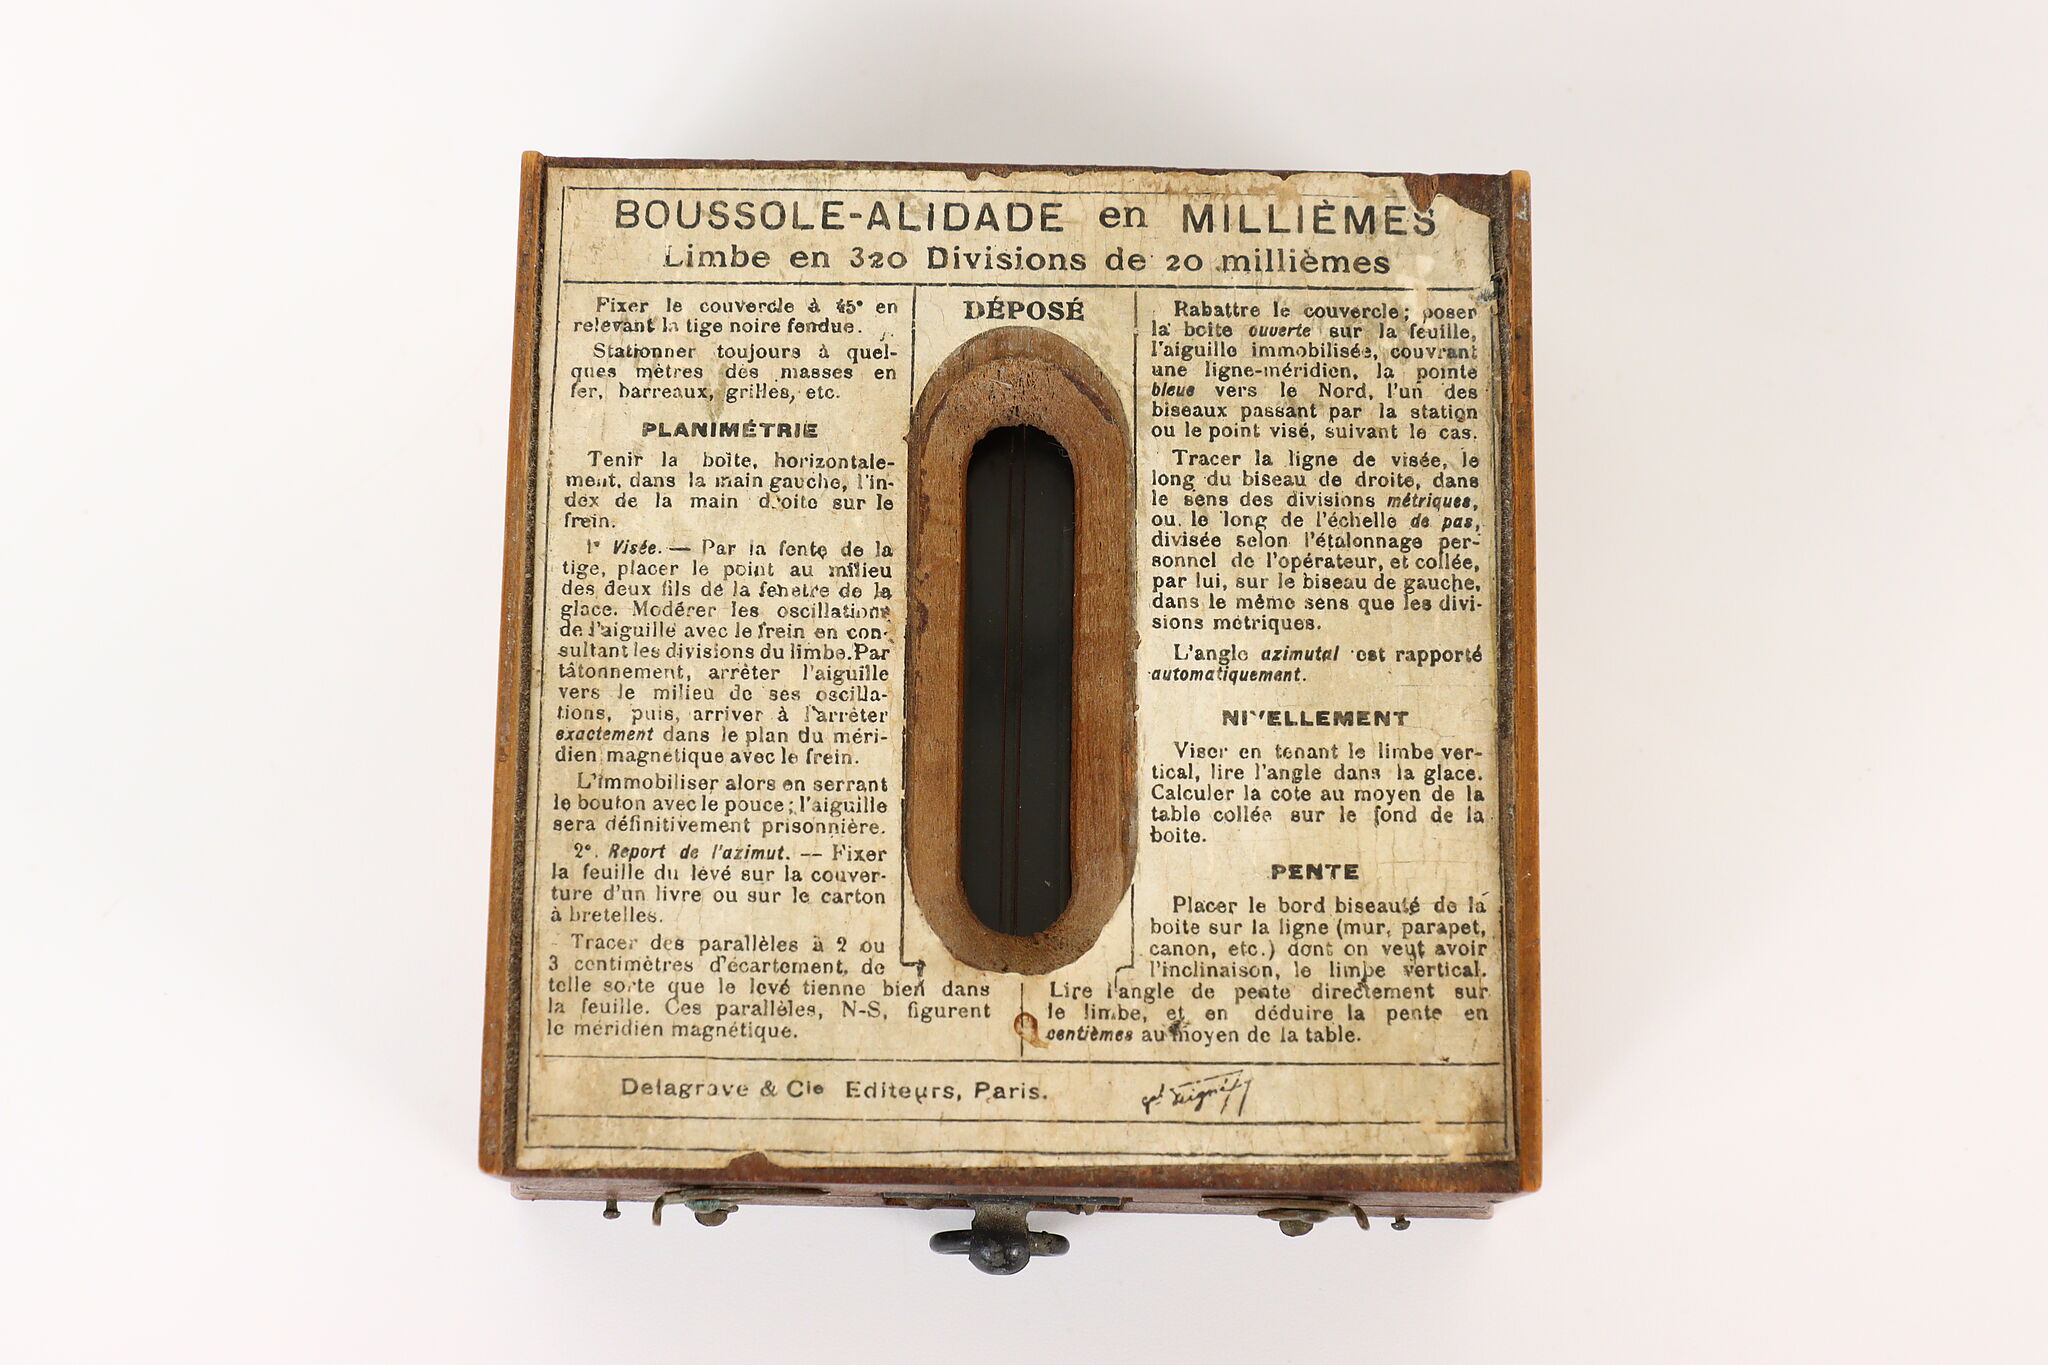 BOUSSOLE-ALIDADE en MILLIÈMES
Limbe en 320 Divisions de 20 millièmes
Fixer le couvercle à 45° en
relevant la tige noire fendue.
Stationner toujours à quel-
ques mètres des masses en
fer, barreaux, grilles, etc.
PLANIMÉTRIE
Tenir la boîte, horizontale-
ment, dans la main gauche, l'in-
dex de la main droite sur le
frein.
1° Visée. — Par la fente de la
tige, placer le point au milieu
des deux fils de la fenêtre de la
glace. Modérer les oscillations
de l'aiguille avec le frein en con-
sultant les divisions du limbe. Par
tâtonnement, arrêter l'aiguille
vers le milieu de ses oscilla-
tions, puis, arriver à l'arrêter
exactement dans le plan du méri-
dien magnétique avec le frein.
L'immobiliser alors en serrant
le bouton avec le pouce; l'aiguille
sera définitivement prisonnière.
2°. Report de l'azimut. — Fixer
la feuille du levé sur la couver-
ture d'un livre ou sur le carton
à bretelles.
Tracer des parallèles à 2 ou
3 centimètres d'écartement, de
telle sorte que le levé tienne bien dans
la feuille. Ces parallèles, N-S, figurent
le méridien magnétique.
DÉPOSÉ
Rabattre le couvercle; poser
la boîte ouverte sur la feuille,
l'aiguille immobilisée, couvrant
une ligne-méridien, la pointe
bleue vers le Nord, l'un des
biseaux passant par la station
ou le point visé, suivant le cas.
Tracer la ligne de visée, le
long du biseau de droite, dans
le sens des divisions métriques,
ou le long de l'échelle de pas,
divisée selon l'étalonnage per-
sonnel de l'opérateur, et collée,
par lui, sur le biseau de gauche,
dans le même sens que les divi-
sions métriques.
L'angle azimutal est rapporté
automatiquement.
NIVELLEMENT
Viser en tenant le limbe ver-
tical, lire l'angle dans la glace.
Calculer la cote au moyen de la
table collée sur le fond de la
boîte.
PENTE
Placer le bord biseauté de la
boîte sur la ligne (mur, parapet,
canon, etc.) dont on veut avoir
l'inclinaison, le limbe vertical.
Lire l'angle de pente directement sur
le limbe, et en déduire la pente en
centièmes au moyen de la table.
Delagrave & Cie Editeurs, Paris.